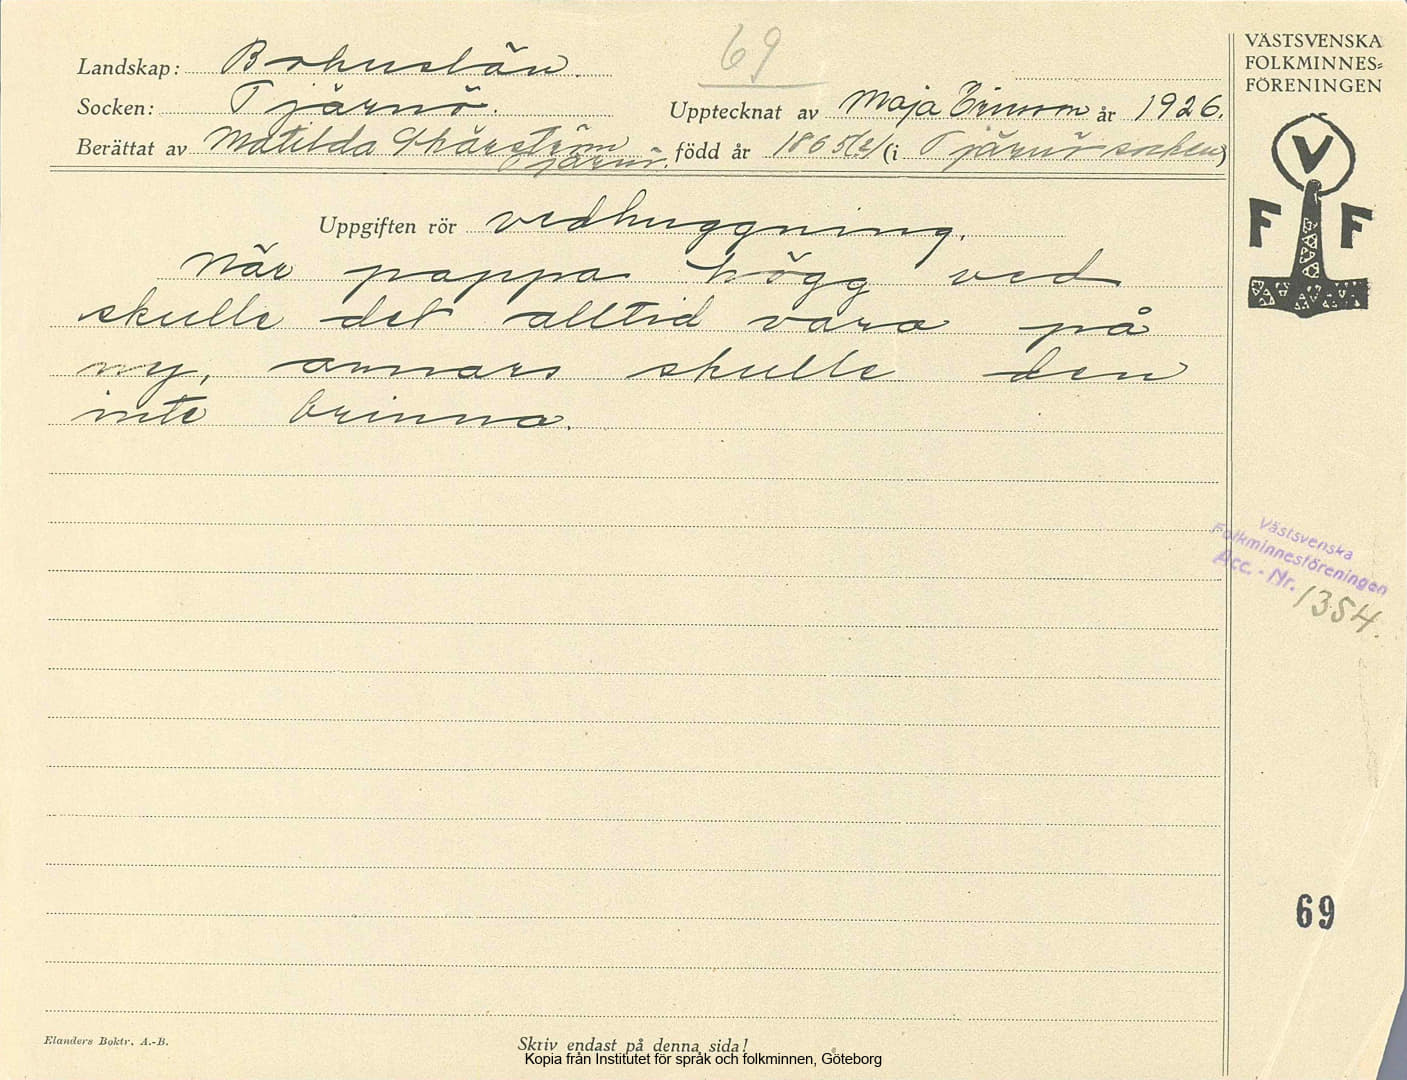 69
VÄSTSVENSKA
FOLKMINNES=
FÖRENINGEN
Landskap: Bohuslän.
Socken: Tjärnö. Upptecknat av Maja Ericson år 1926.
Berättat av Matilda Skärström Tjärnö. född år 1865 (i Tjärnö socken)
V
F F
Uppgiften rör vedhuggning.
När pappa högg ved
skulle det alltid vara på
ny, annars skulle den
inte brinna.
Västsvenska
Folkminnesföreningen
Acc. - Nr. 1354.
69
Elanders Boktr. A.-B.
Skriv endast på denna sida!
Kopia från Institutet för språk och folkminnen, Göteborg